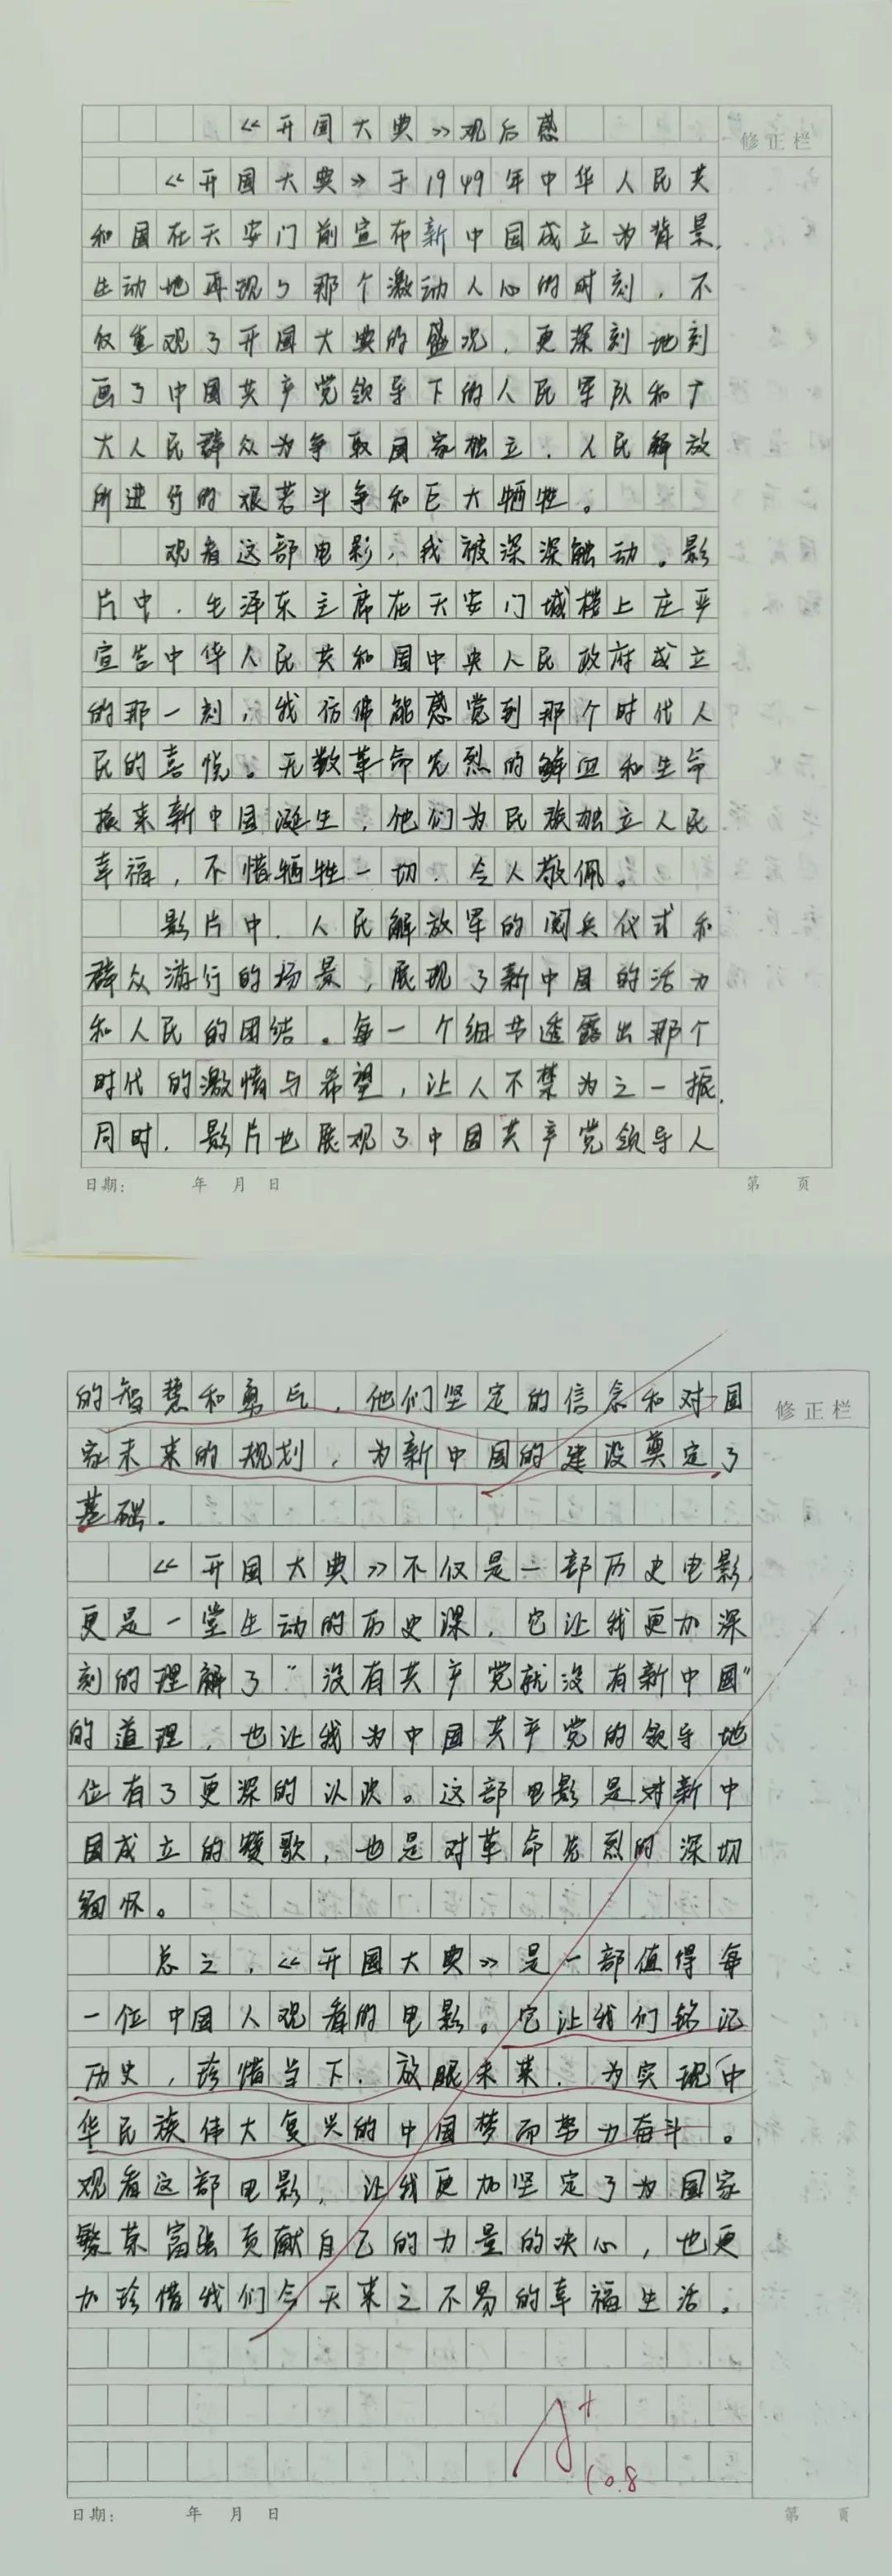 《开国大典》观后感
修正栏
《开国大典》于1949年中华人民共
和国在天安门前宣布新中国成立为背景,
生动地再现了那个激动人心的时刻,不
仅重观了开国大典的盛况,更深刻地刻
画了中国共产党领导下的人民军队和广
大人民群众为争取国家独立、人民解放
所进行的艰苦斗争和巨大牺牲。
观看这部电影,我被深深触动。影
片中,毛泽东主席在天安门城楼上庄严
宣告中华人民共和国中央人民政府成立
的那一刻,我仿佛能感觉到那个时代人
民的喜悦。无数革命先烈的鲜血和生命
换来新中国诞生,他们为民族独立人民
幸福,不惜牺牲一切,令人敬佩。
影片中,人民解放军的阅兵仪式和
群众游行的场景,展现了新中国的活力
和人民的团结。每一个细节透露出那个
时代的激情与希望,让人不禁为之一振,
同时,影片也展观了中国共产党领导人
日期: 年 月 日 第 页
的智慧和勇气,他们坚定的信念和对国
修正栏
家未来的规划,为新中国的建设奠定了
基础.
《开国大典》不仅是一部历史电影,
更是一堂生动的历史课,它让我更加深
刻的理解了“没有共产党就没有新中国”
的道理,也让我为中国共产党的领导地
位有了更深的认识。这部电影是对新中
国成立的赞歌,也是对革命先烈的深切
缅怀。
总之,《开国大典》是一部值得每
一位中国人观看的电影。它让我们铭记
历史,珍惜当下,放眼未来,为实现中
华民族伟大复兴的中国梦而努力奋斗。
观看这部电影,让我更加坚定了为国家
繁荣富强贡献自己的力量的决心,也更
加珍惜我们今天来之不易的幸福生活。
A+
10.8
日期: 年 月 日 第 页